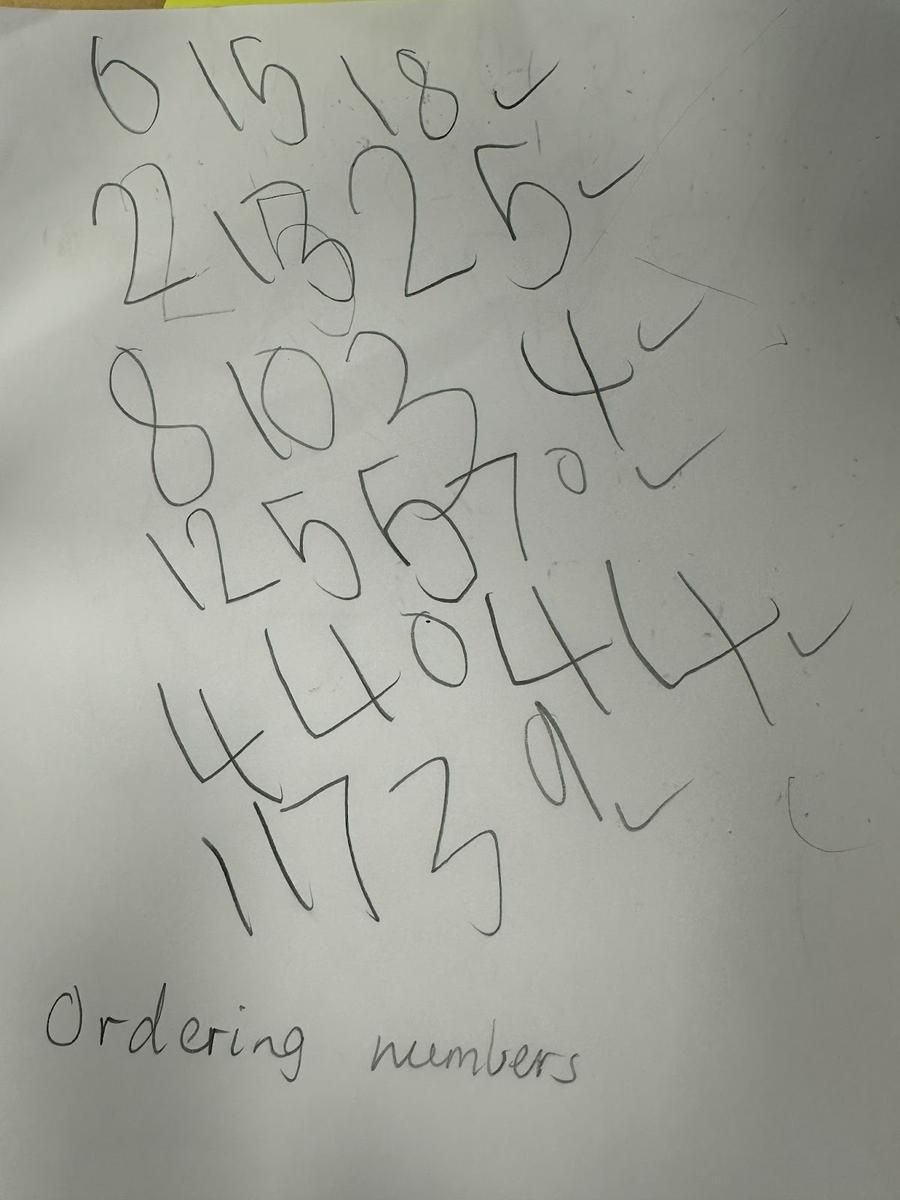 6 15 18 ✓
2 13 25 ✓
8 10 34 ✓
12 55 70 ✓
4 40 44 ✓
1 17 39 ✓
Ordering numbers